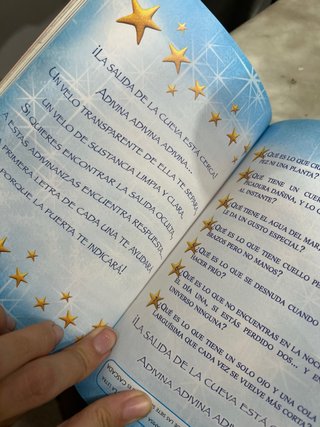 ¡LA SALIDA DE LA CUEVA ESTÁ CERCA!
ADIVINA ADIVINA ADIVINA...
UN VELO TRANSPARENTE DE ELLA TE SEPARA,
UN VELO DE SUSTANCIA LIMPIA Y CLARA.
SI QUIERES ENCONTRAR LA SALIDA OCULTA,
A ESTAS ADIVINANZAS ENCUENTRA RESPUESTA.
PRIMERA LETRA DE CADA UNA TE AYUDARÁ
PORQUE LA PUERTA TE INDICARÁ!
¿QUÉ ES LO QUE
VEZ NI UNA PLANTA?
¿QUÉ TIENE UN CUER
PICADURA DAÑINA, Y LO
AL INSTANTE?
¿QUÉ TIENE EL AGUA DEL MAR
LE DA UN GUSTO ESPECIAL?
¿QUÉ ES LO QUE TIENE CUELLO PE
BRAZOS PERO NO MANOS?
¿QUÉ ES LO QUE SE DESNUDA CUANDO
HACER FRÍO?
¿QUÉ ES LO QUE NO ENCUENTRAS EN LA NOCH
EL DÍA UNA, SI ESTÁS PERDIDO DOS... Y EN
UNIVERSO NINGUNA?
¿QUÉ ES LO QUE TIENE UN SOLO OJO Y UNA COLA
LARGUÍSIMA QUE CADA VEZ SE VUELVE MÁS CORTA?
¡LA SALIDA DE LA CUEVA ESTÁ
ADIVINA ADIVINA ADIV